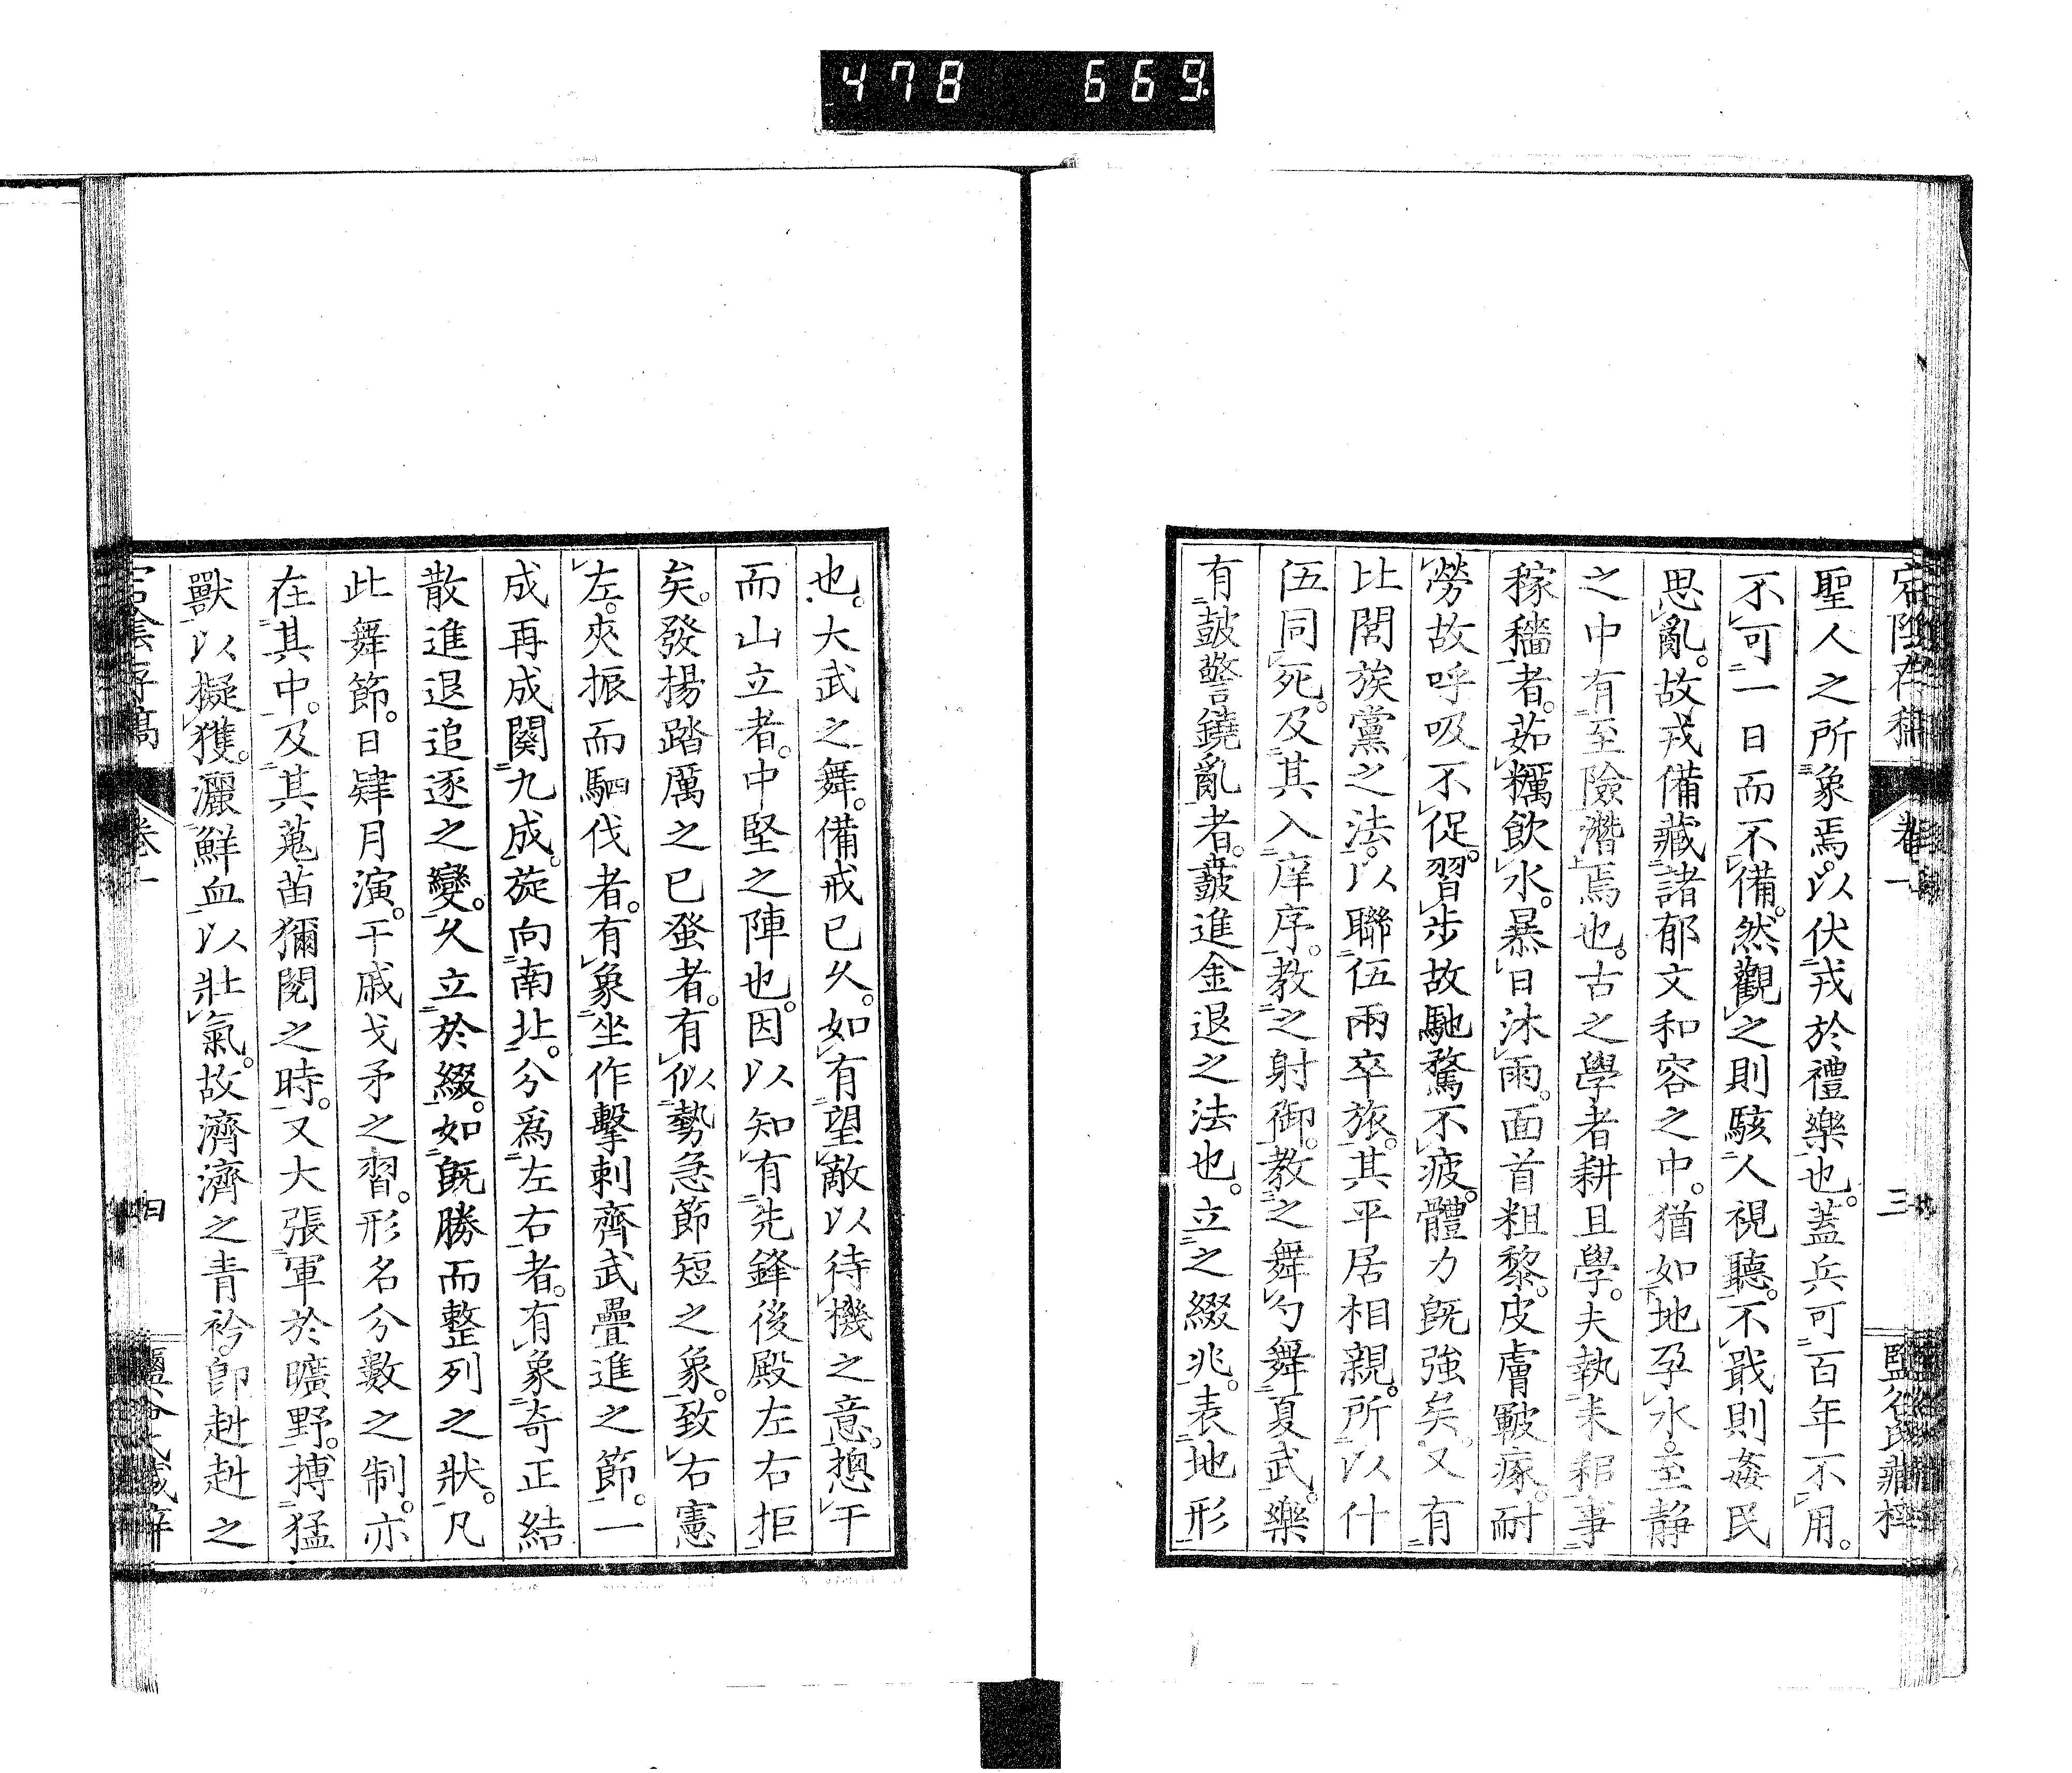 478 669
聖人之所象焉。以伏戎於禮樂也。蓋兵可百年不用。
不可一日而不備。然觀之則駭人視聽。不戢則姦民
思亂。故戎備藏諸郁文和容之中。猶如地孕水。至靜
之中有至險潛焉也。古之學者耕且學。夫執耒耜事
稼穡者。茹糲飲水。暴日沐雨。面首粗黎。皮膚皸瘃。耐
勞故呼吸不促。習步故馳騖不疲。體力旣強矣。又有
比閭族黨之法。以聯伍兩卒旅。其平居相親。所以什
伍同死。及其入庠序。教之射御。教之舞勺舞夏武。樂
有鼓警鐃亂者。鼓進金退之法也。立之綴兆。表地形
也。大武之舞。備戒已久。如有望敵以待機之意。摠干
而山立者。中堅之陣也。因以知有先鋒後殿左右拒
矣。發揚蹈厲之已蚤者。有似勢急節短之象。致右憲
左。夾振而駟伐者。有象坐作擊刺齊武疊進之節。一
成再成闋九成。旋向南北。分爲左右者。有象奇正結
散進退追逐之變。久立於綴。如旣勝而整列之狀。凡
此舞節。日肄月演。干戚戈矛之習。形名分數之制。亦
在其中。及其蒐苗獮閱之時。又大張軍於曠野。搏猛
獸以擬獲。灑鮮血以壯氣。故濟濟之青衿。卽赳赳之
卷一